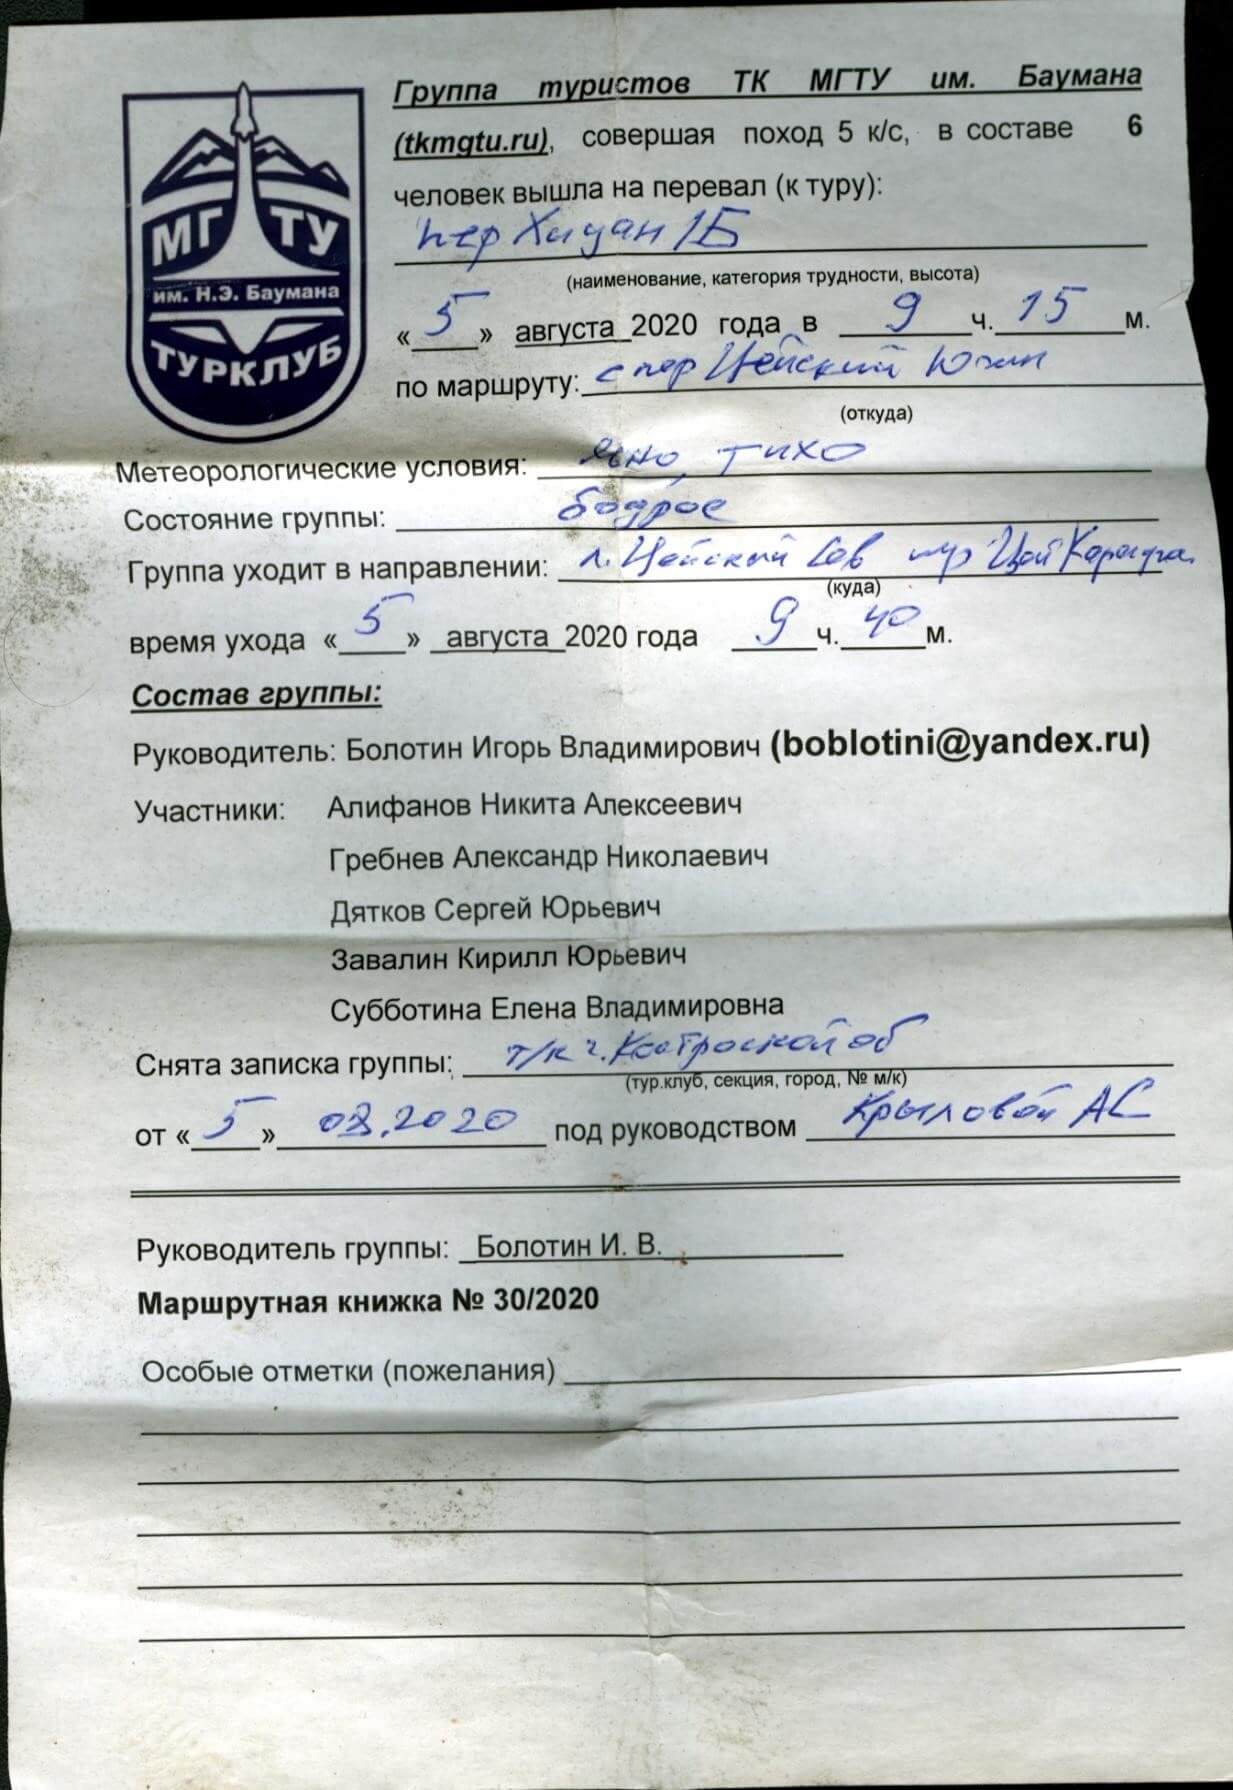 МГ ТУ
им. Н.Э. Баумана
ТУРКЛУБ
Группа туристов ТК МГТУ им. Баумана
(tkmgtu.ru), совершая поход 5 к/с, в составе 6
человек вышла на перевал (к туру):
пер Хицан 1Б
(наименование, категория трудности, высота)
«5» августа 2020 года в 9 ч. 15 м.
по маршруту: с пер Цейский Южн
(откуда)
Метеорологические условия: ясно, тихо
Состояние группы: бодрое
Группа уходит в направлении: л. Цейский Сев пер Цей
(куда)
время ухода «5» августа 2020 года 9 ч. 40 м.
Состав группы:
Руководитель: Болотин Игорь Владимирович (boblotini@yandex.ru)
Участники: Алифанов Никита Алексеевич
Гребнев Александр Николаевич
Дятков Сергей Юрьевич
Завалин Кирилл Юрьевич
Субботина Елена Владимировна
Снята записка группы: т/к г. об
(тур.клуб, секция, город, № м/к)
от «5» 08.2020 под руководством Крыловой АС
Руководитель группы: Болотин И. В.
Маршрутная книжка № 30/2020
Особые отметки (пожелания)